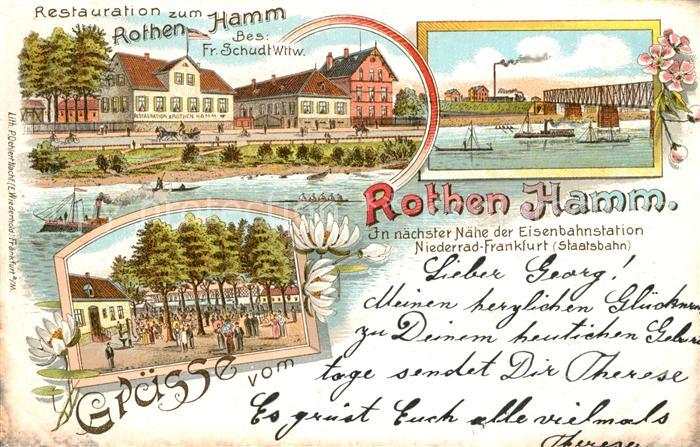 Restauration zum
Rothen Hamm
Bes:
Fr. Schudt Wttw.
RESTAURATION z. ROTHEN HAMM
Rothen Hamm.
In nächster Nähe der Eisenbahnstation
Niederrad-Frankfurt (Staatsbahn)
Grüsse vom
Lieber Georg!
Meinen herzlichen Glückwun
zu Deinem heutichen Gebur
tage sendet Dir Therese
Es grüst Euch alle vielmals
Therese